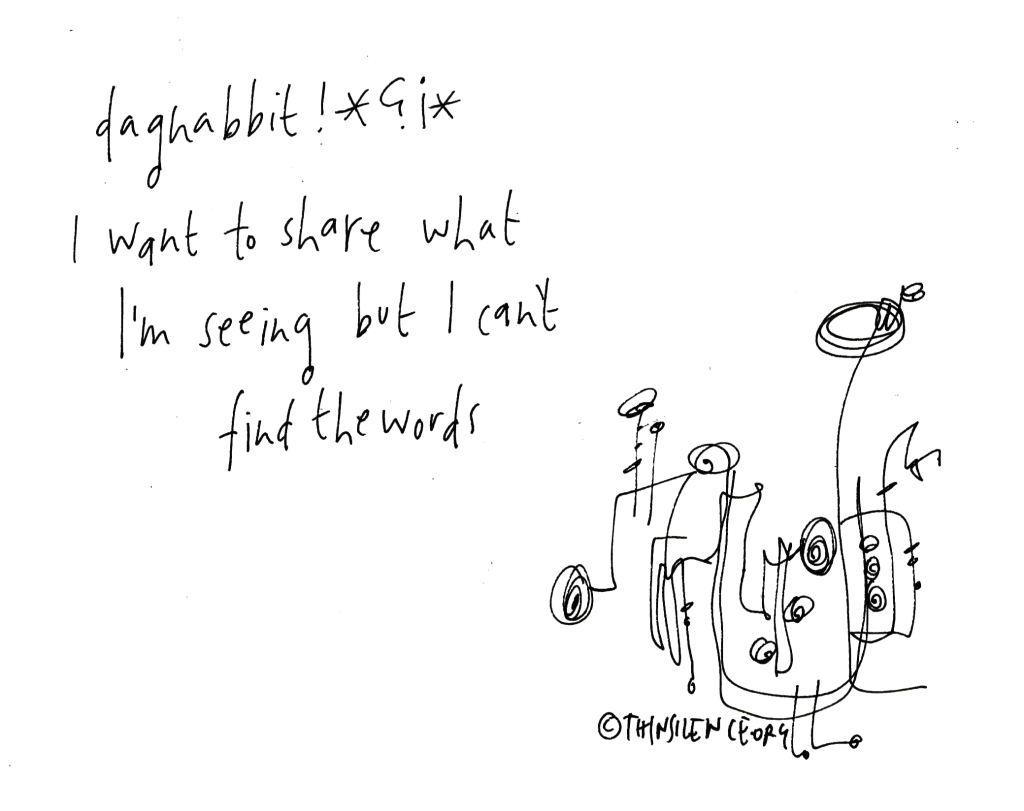 dagnabbit!*?¡*
I want to share what
I'm seeing but I can't
find the words
©THINSILENCE.ORG